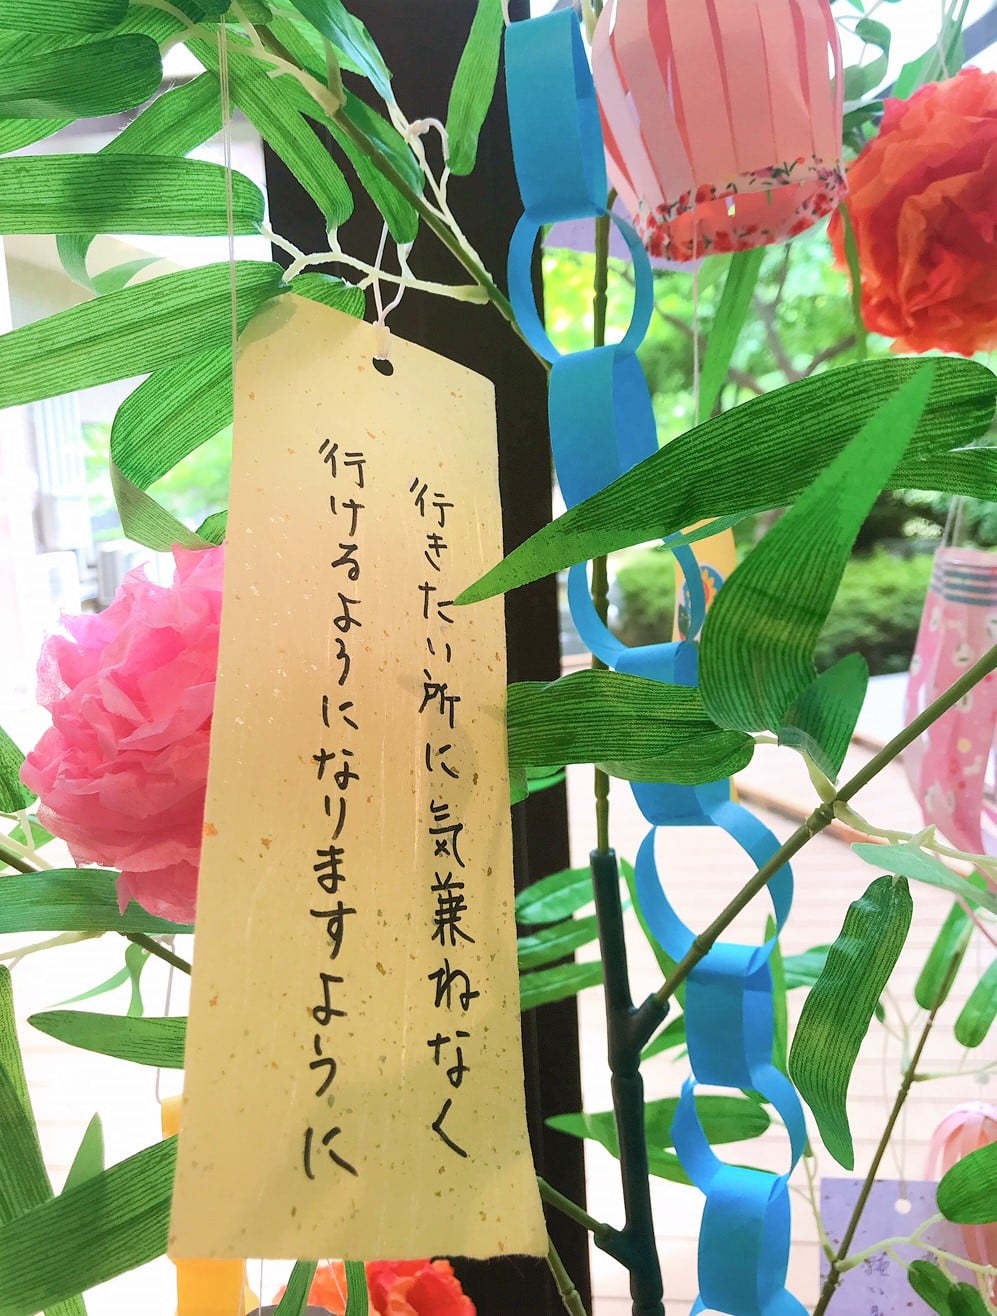 行きたい所に気兼ねなく
行けるようになりますように